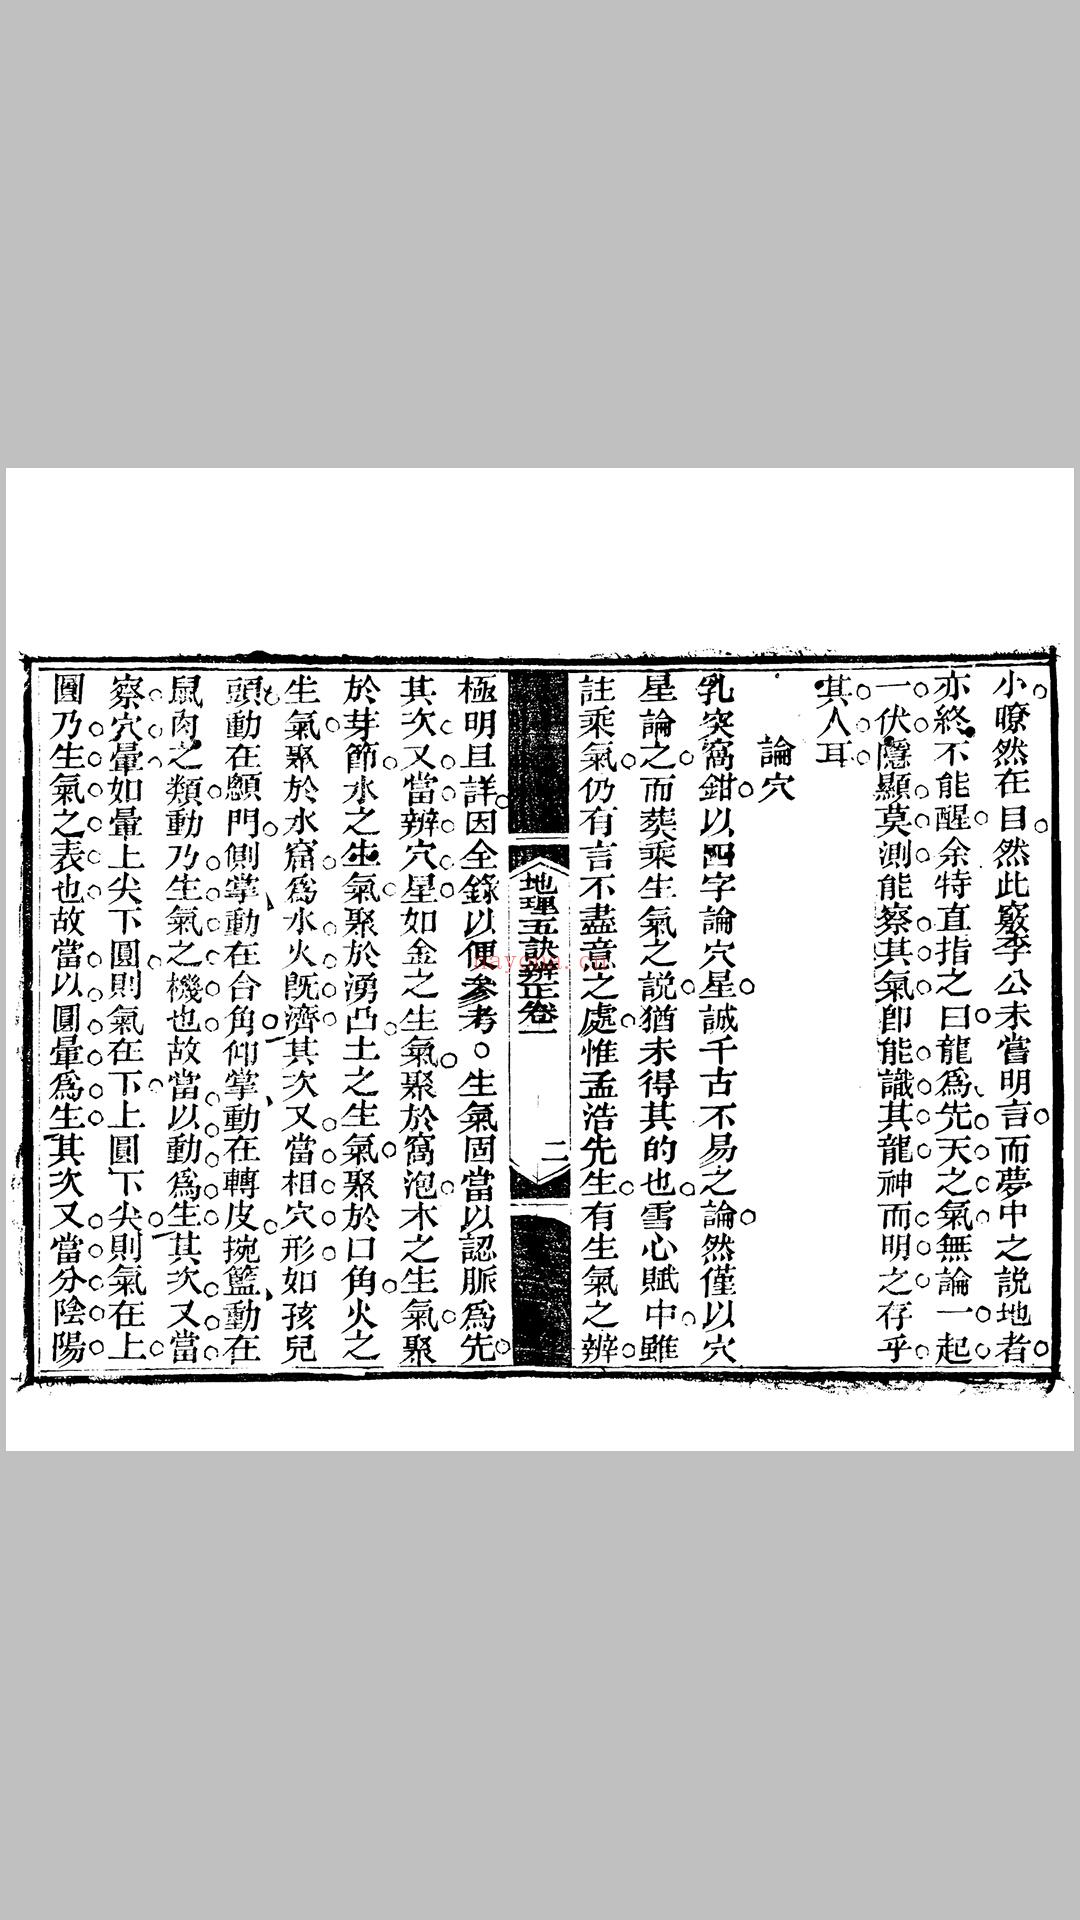 小暸然在目然此竅李公未嘗明言而夢中之説地者
亦終不能醒余特直指之曰龍爲先天之氣無論一起
一伏隱顯莫測能察其氣卽能識其龍神而明之存乎
其人耳
論穴
乳突窩鉗以四字論穴星誠千古不易之論然僅以穴
星論之而葬乘生氣之説猶未得其的也雪心賦中雖
註乘氣仍有言不盡意之處惟孟浩先生有生氣之辨
地理五訣辨正卷一
二
極明且詳因全錄以便參考○生氣固當以認脈爲先
其次又當辨穴星如金之生氣聚於窩泡木之生氣聚
於芽節水之生氣聚於湧凸土之生氣聚於口角火之
生氣聚於水窟爲水火旣濟其次又當相穴形如孩兒
頭動在顖門側掌動在合角仰掌動在轉皮捥籃動在
鼠肉之類動乃生氣之機也故當以動爲生其次又當
察穴暈如暈上尖下圓則氣在下上圓下尖則氣在上
圓乃生氣之表也故當以圓暈爲生其次又當分陰陽
nayona.cn